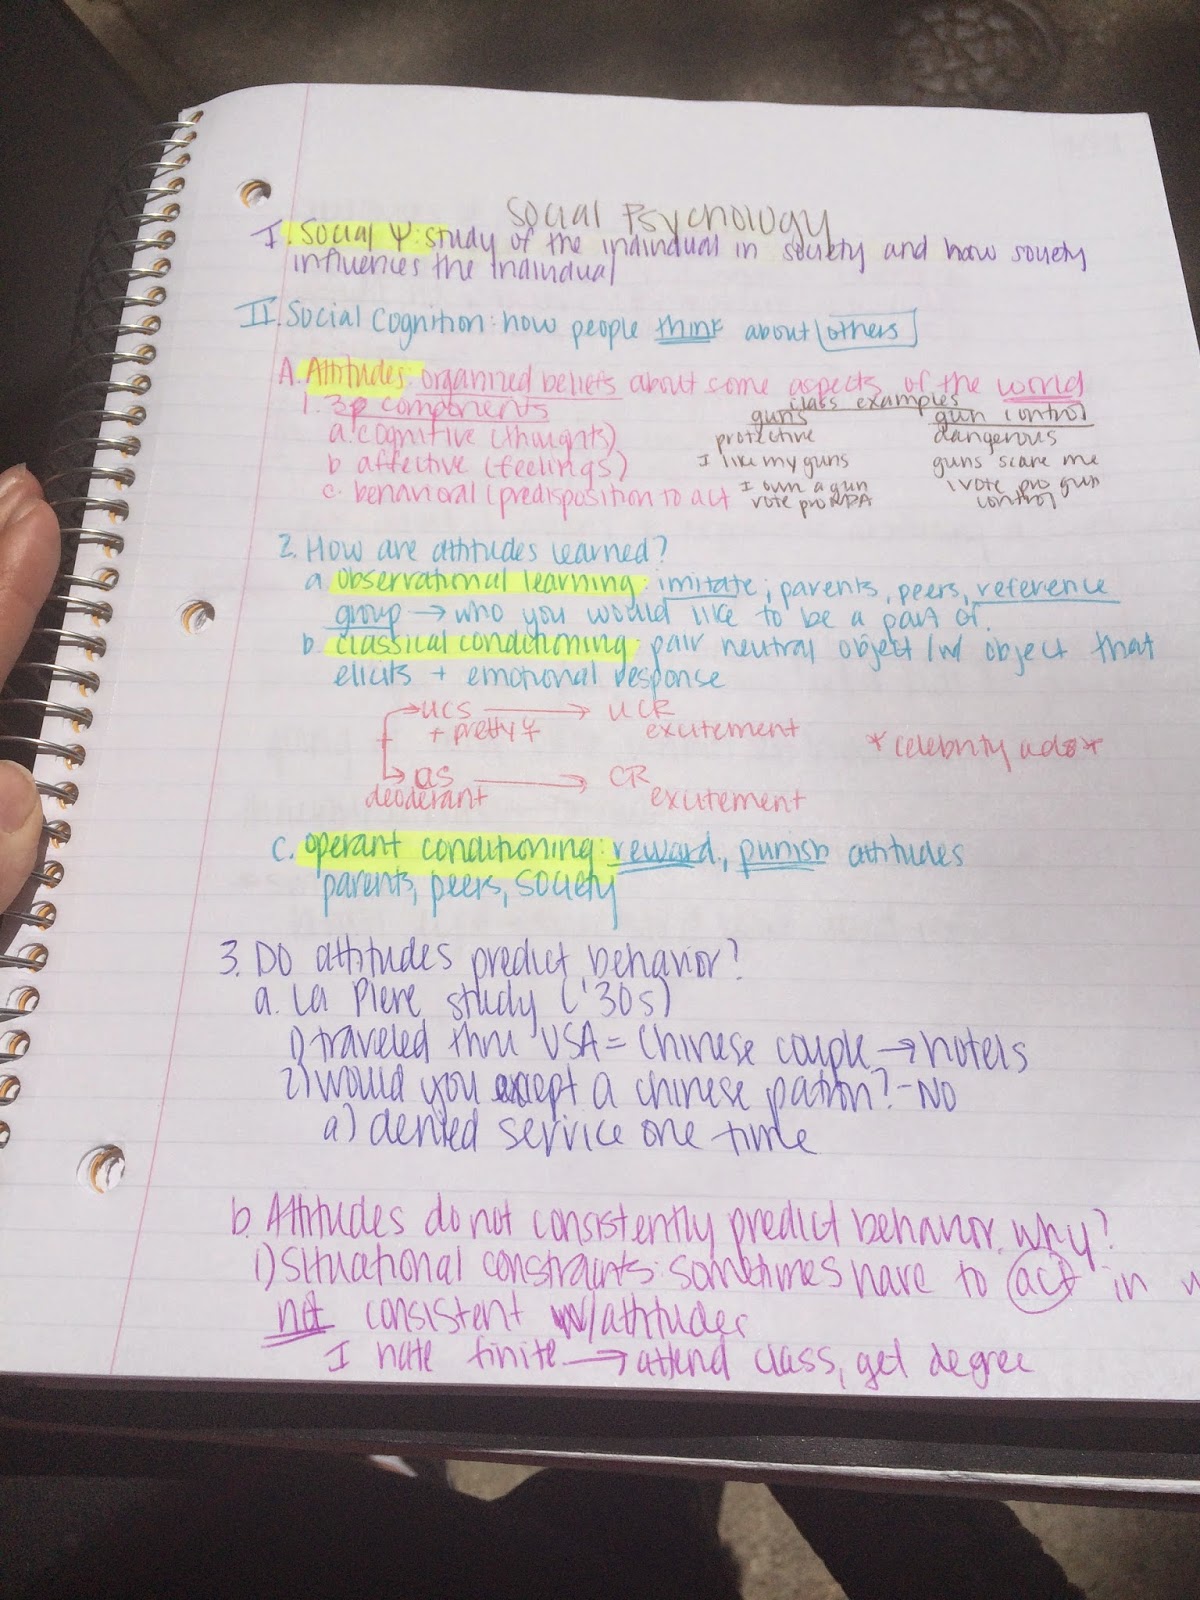 Social Psychology
I. Social Ψ: study of the individual in society and how society
influences the individual
II. Social Cognition: how people think about others
A. Attitudes: organized beliefs about some aspects of the world
1. 3p components
class examples
guns gun control
a. cognitive (thoughts) protective dangerous
b affective (feelings) I like my guns guns scare me
c. behavioral (predisposition to act I own a gun I vote pro gun
vote pro NRA control
2. How are attitudes learned?
a. Observational learning: imitate; parents, peers, reference
group → who you would like to be a part of.
b. classical conditioning: pair neutral object /w object that
elicits + emotional response
→ UCS → UCR
+ pretty ♀ excitement
*celebrity ads*
→ CS → CR
deoderant excitement
c. operant conditioning: reward, punish attitudes
parents, peers, society
3. Do attitudes predict behavior?
a. La Piere study ('30s)
1) traveled thru USA = Chinese couple → hotels
2) would you except a chinese patron? - NO
a) denied service one time
b. Attitudes do not consistently predict behavior. why?
1) situational constraints: sometimes have to act in
not consistent w/attitudes
I hate finite → attend class, get degree